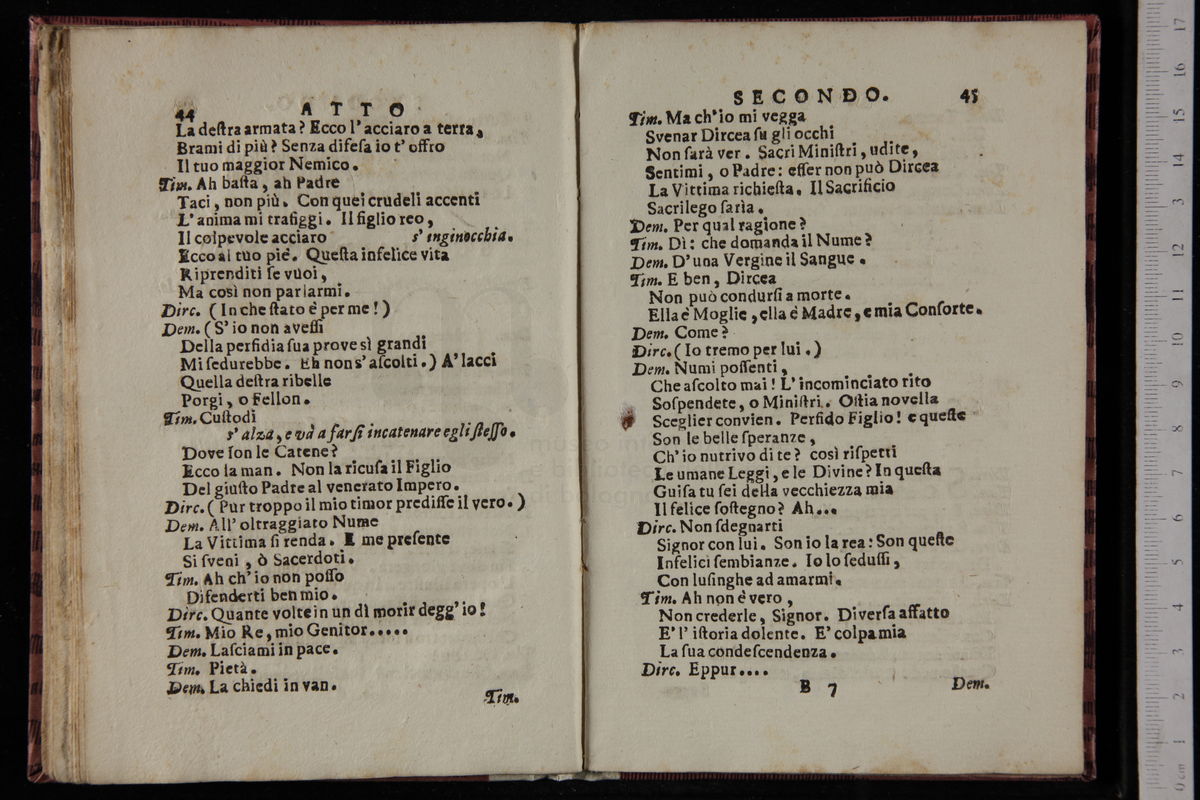 44 ATTO
La deſtra armata? Ecco l'acciaro a terra,
Brami di più? Senza difeſa io t'offro
Il tuo maggior Nemico.
Tim. Ah baſta, ah Padre
Taci, non più. Con quei crudeli accenti
L'anima mi trafiggi. Il figlio reo,
Il colpevole acciaro s'inginocchia.
Ecco al tuo piè. Queſta infelice vita
Riprenditi ſe vuoi,
Ma così non parlarmi.
Dirc. (In che ſtato è per me!)
Dem. (S'io non aveſſi
Della perfidia ſua prove sì grandi
Mi ſedurebbe. Eh non s'aſcolti.) A'lacci
Quella deſtra ribelle
Porgi, o Fellon.
Tim. Cuſtodi
s'alza, e và a farſi incatenare egli ſteſſo.
Dove ſon le Catene?
Ecco la man. Non la ricuſa il Figlio
Del giuſto Padre al venerato Impero.
Dirc. (Pur troppo il mio timor prediſſe il vero.)
Dem. All'oltraggiato Nume
La Vittima ſi renda. E me preſente
Si ſveni, ò Sacerdoti.
Tim. Ah ch'io non poſſo
Difenderti ben mio.
Dirc. Quante volte in un dì morir degg'io!
Tim. Mio Re, mio Genitor.....
Dem. Laſciami in pace.
Tim. Pietà.
Dem. La chiedi in van.
Tim.
SECONDO. 45
Tim. Ma ch'io mi vegga
Svenar Dircea ſu gli occhi
Non ſarà ver. Sacri Miniſtri, udite,
Sentimi, o Padre: eſſer non può Dircea
La Vittima richieſta. Il Sacrificio
Sacrilego ſarìa.
Dem. Per qual ragione?
Tim. Dì: che domanda il Nume?
Dem. D'una Vergine il Sangue.
Tim. E ben, Dircea
Non può condurſi a morte.
Ella è Moglie, ella è Madre, e mia Conſorte.
Dem. Come?
Dirc. (Io tremo per lui.)
Dem. Numi poſſenti,
Che aſcolto mai! L'incominciato rito
Soſpendete, o Miniſtri. Oſtia novella
Sceglier convien. Perfido Figlio! e queſte
Son le belle ſperanze,
Ch'io nutrivo di te? così riſpetti
Le umane Leggi, e le Divine? In queſta
Guiſa tu ſei della vecchiezza mia
Il felice ſoſtegno? Ah...
Dirc. Non ſdegnarti
Signor con lui. Son io la rea: Son queſte
Infelici ſembianze. Io lo ſeduſſi,
Con luſinghe ad amarmi.
Tim. Ah non è vero,
Non crederle, Signor. Diverſa affatto
E'l'iſtoria dolente. E'colpa mia
La ſua condeſcendenza.
Dirc. Eppur....
B 7 Dem.